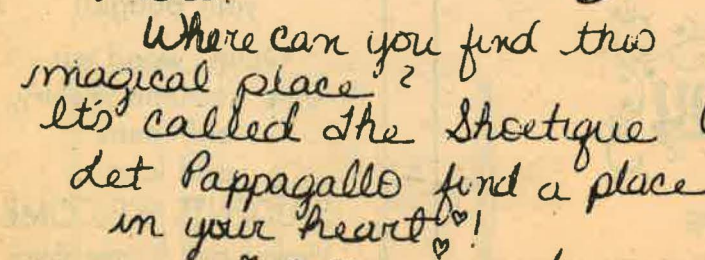 Where can you find this
magical place?
It's called The Shoetique
Let Pappagallo find a place
in your heart♡♡!